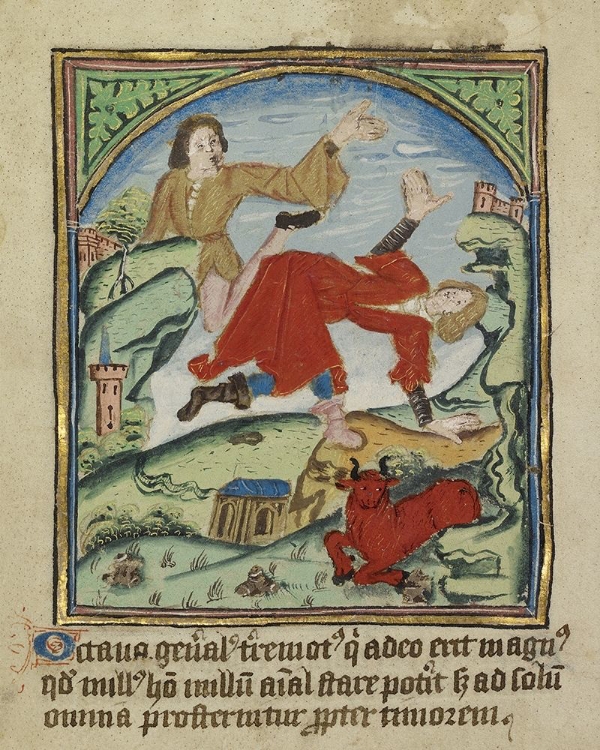 Octaua gen̄al᾽ t̄remotꝰ q̄ adeo erit magnꝰ
qđ nullꝰ hō nullū aīal stare pot̄it sꝫ ad solū
omnia prosternutur ꝓpter timorem.